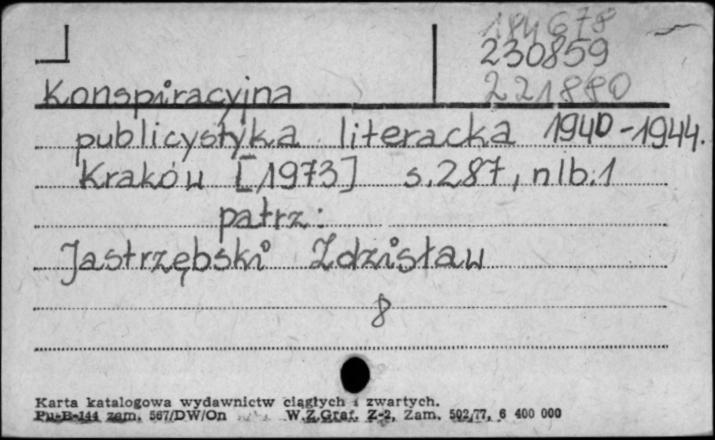 184678
230859
221880
Konspiracyjna
publicystyka literacka 1940-1944.
Kraków [1973] s.287, nlb.1
patrz:
Jastrzębski Zdzisław
8
Karta katalogowa wydawnictw ciągłych i zwartych.
Pu-B-144 zam. 567/DW/On W.Z.Graf. Z-2, Zam. 502/77, 6 400 000